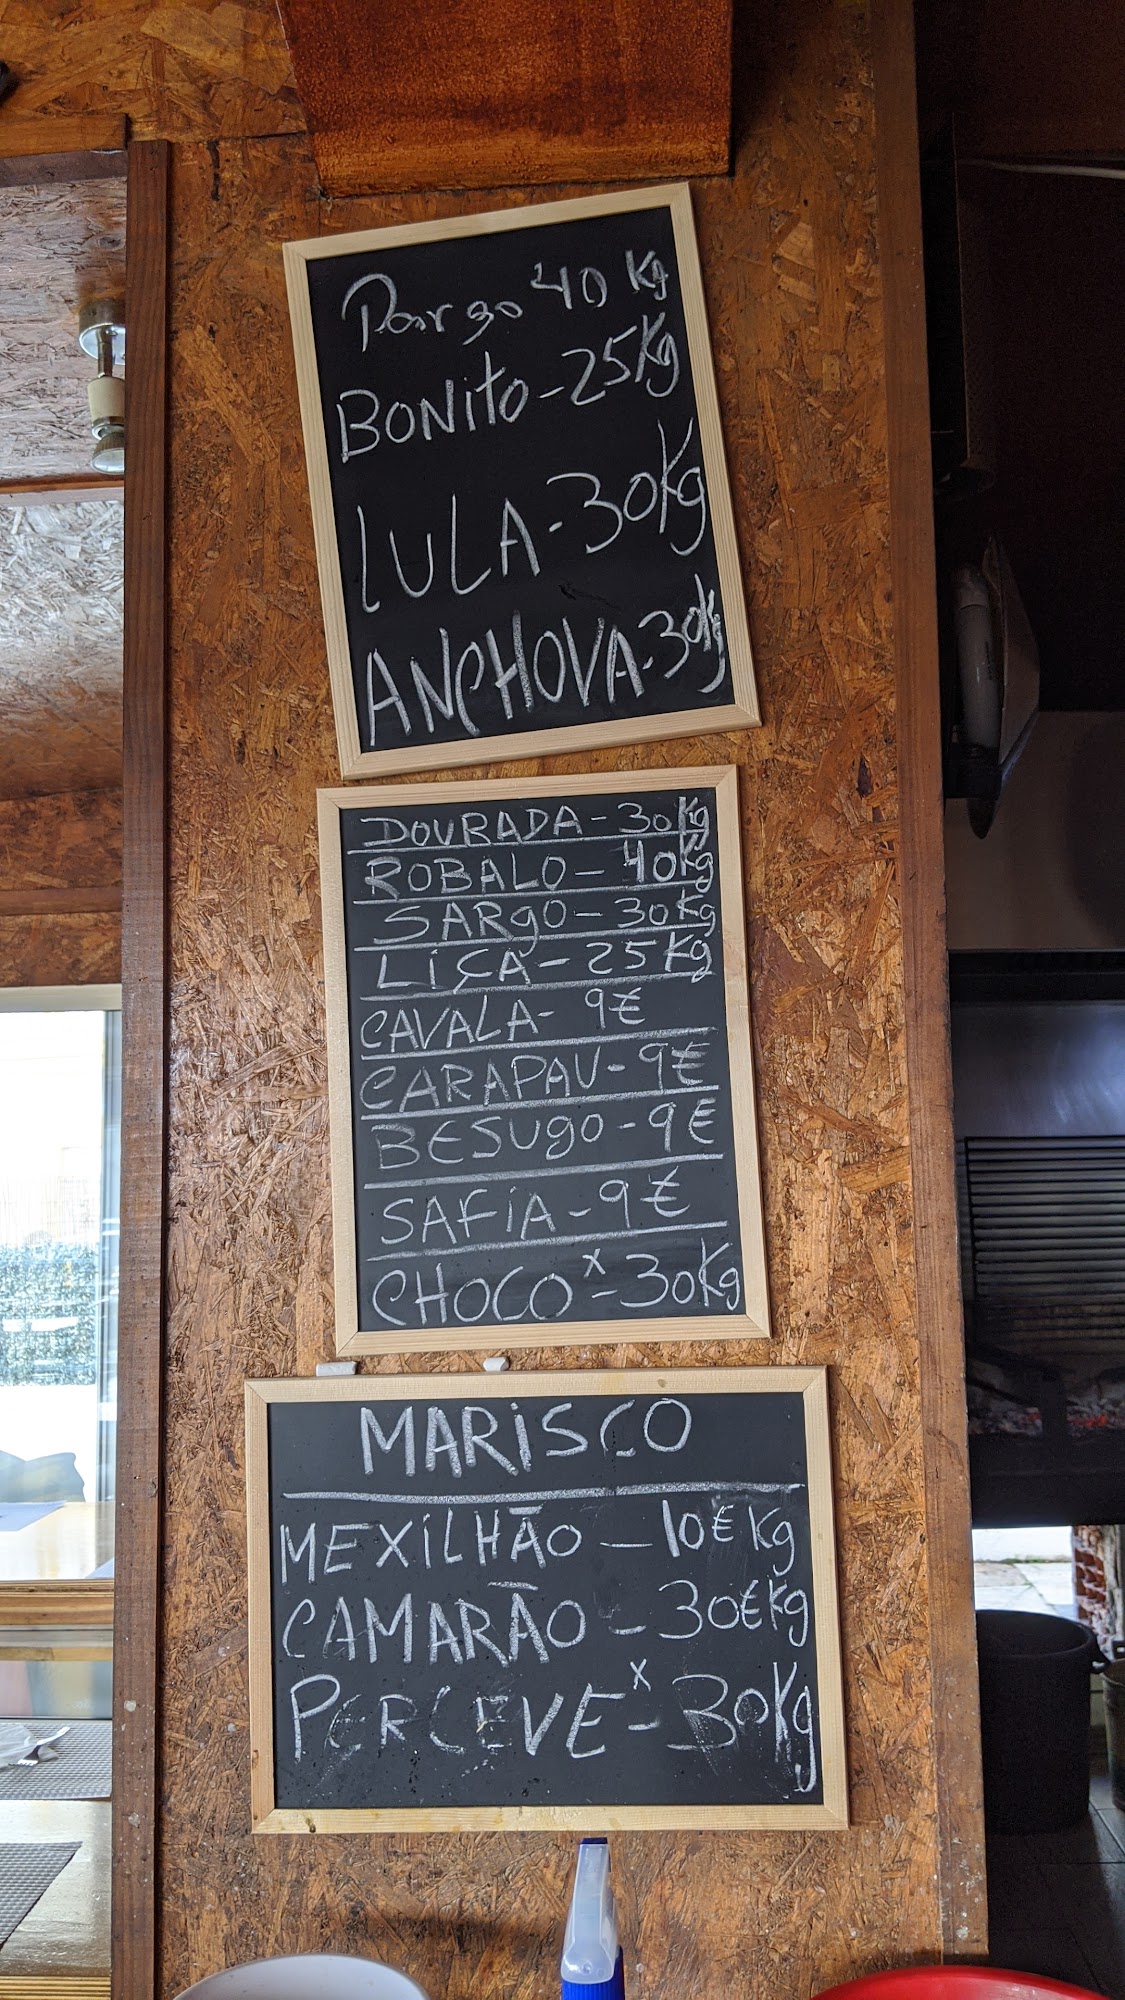 Pargo 40 Kg
BONito - 25Kg
LULA - 30Kg
ANCHOVA - 30Kg
DOURADA - 30Kg
ROBALO - 40Kg
SARgO - 30Kg
LiÇA - 25Kg
CAVALA - 9€
CARAPAU - 9€
BESUgO - 9€
SAFiA - 9€
CHOCO x - 30Kg
MARiSCO
MEXiLHÃO - 10€Kg
CAMARÃO - 30€Kg
PERCEVE x - 30Kg